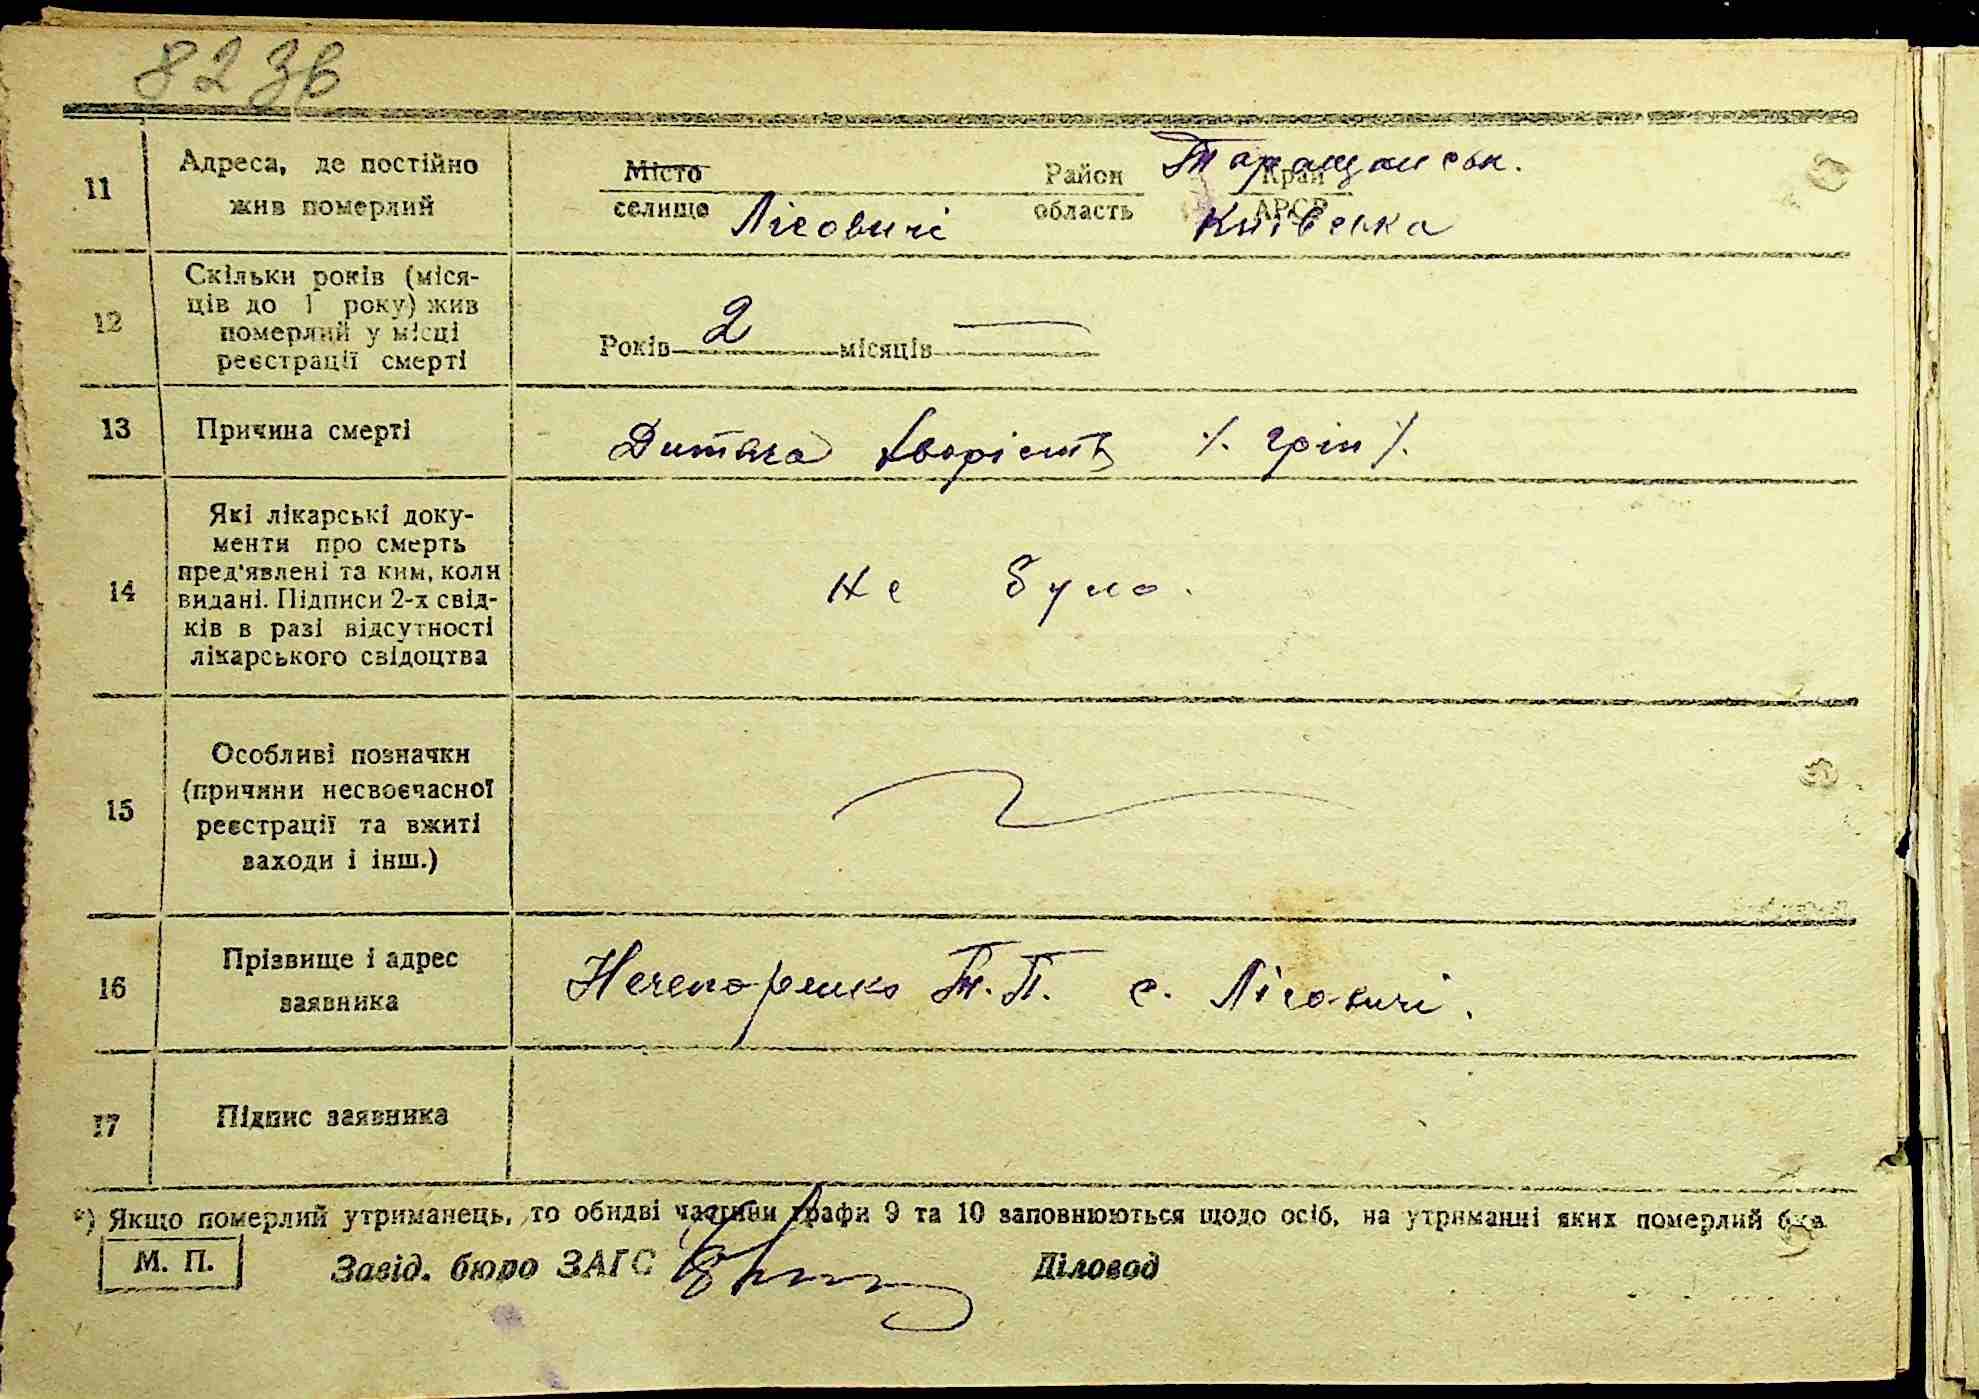 82 зв
11
Адреса, де постійно
жив померлий
Місто
селище Лісовичі
Район Таращанськ.
область Київська
Край
АРСР
12
Скільки років (міся-
ців до 1 року) жив
померлий у місці
реєстрації смерті
Років 2 місяців —
13
Причина смерті
Дитяча хворість /. грип /.
14
Які лікарські доку-
менти про смерть
пред'явлені та ким, коли
видані. Підписи 2-х свід-
ків в разі відсутності
лікарського свідоцтва
Не було.
15
Особливі позначки
(причини несвоєчасної
реєстрації та вжиті
заходи і інш.)
16
Прізвище і адрес
заявника
Нечепоренко Т. П. с. Лісовичі.
17
Підпис заявника
*) Якщо померлий утриманець, то обидві частини графи 9 та 10 заповнюються щодо осіб, на утриманні яких померлий був
М. П.
Завід. бюро ЗАГС
Діловод